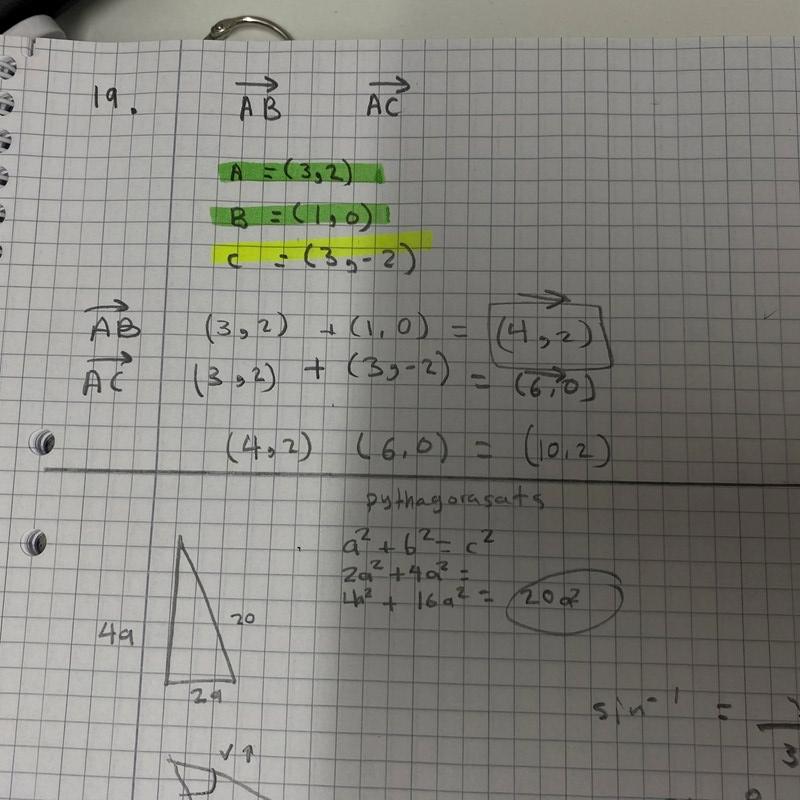 19. AB AC
A = (3,2)
B = (1,0)
C = (3,-2)
AB (3,2) + (1,0) = (4,2)
AC (3,2) + (3,-2) = (6,0)
(4,2) (6,0) = (10,2)
pythagorasats
a² + b² = c²
2a² + 4a² =
4a² + 16a² = 20a²
20
4a
2a
sin⁻¹ =